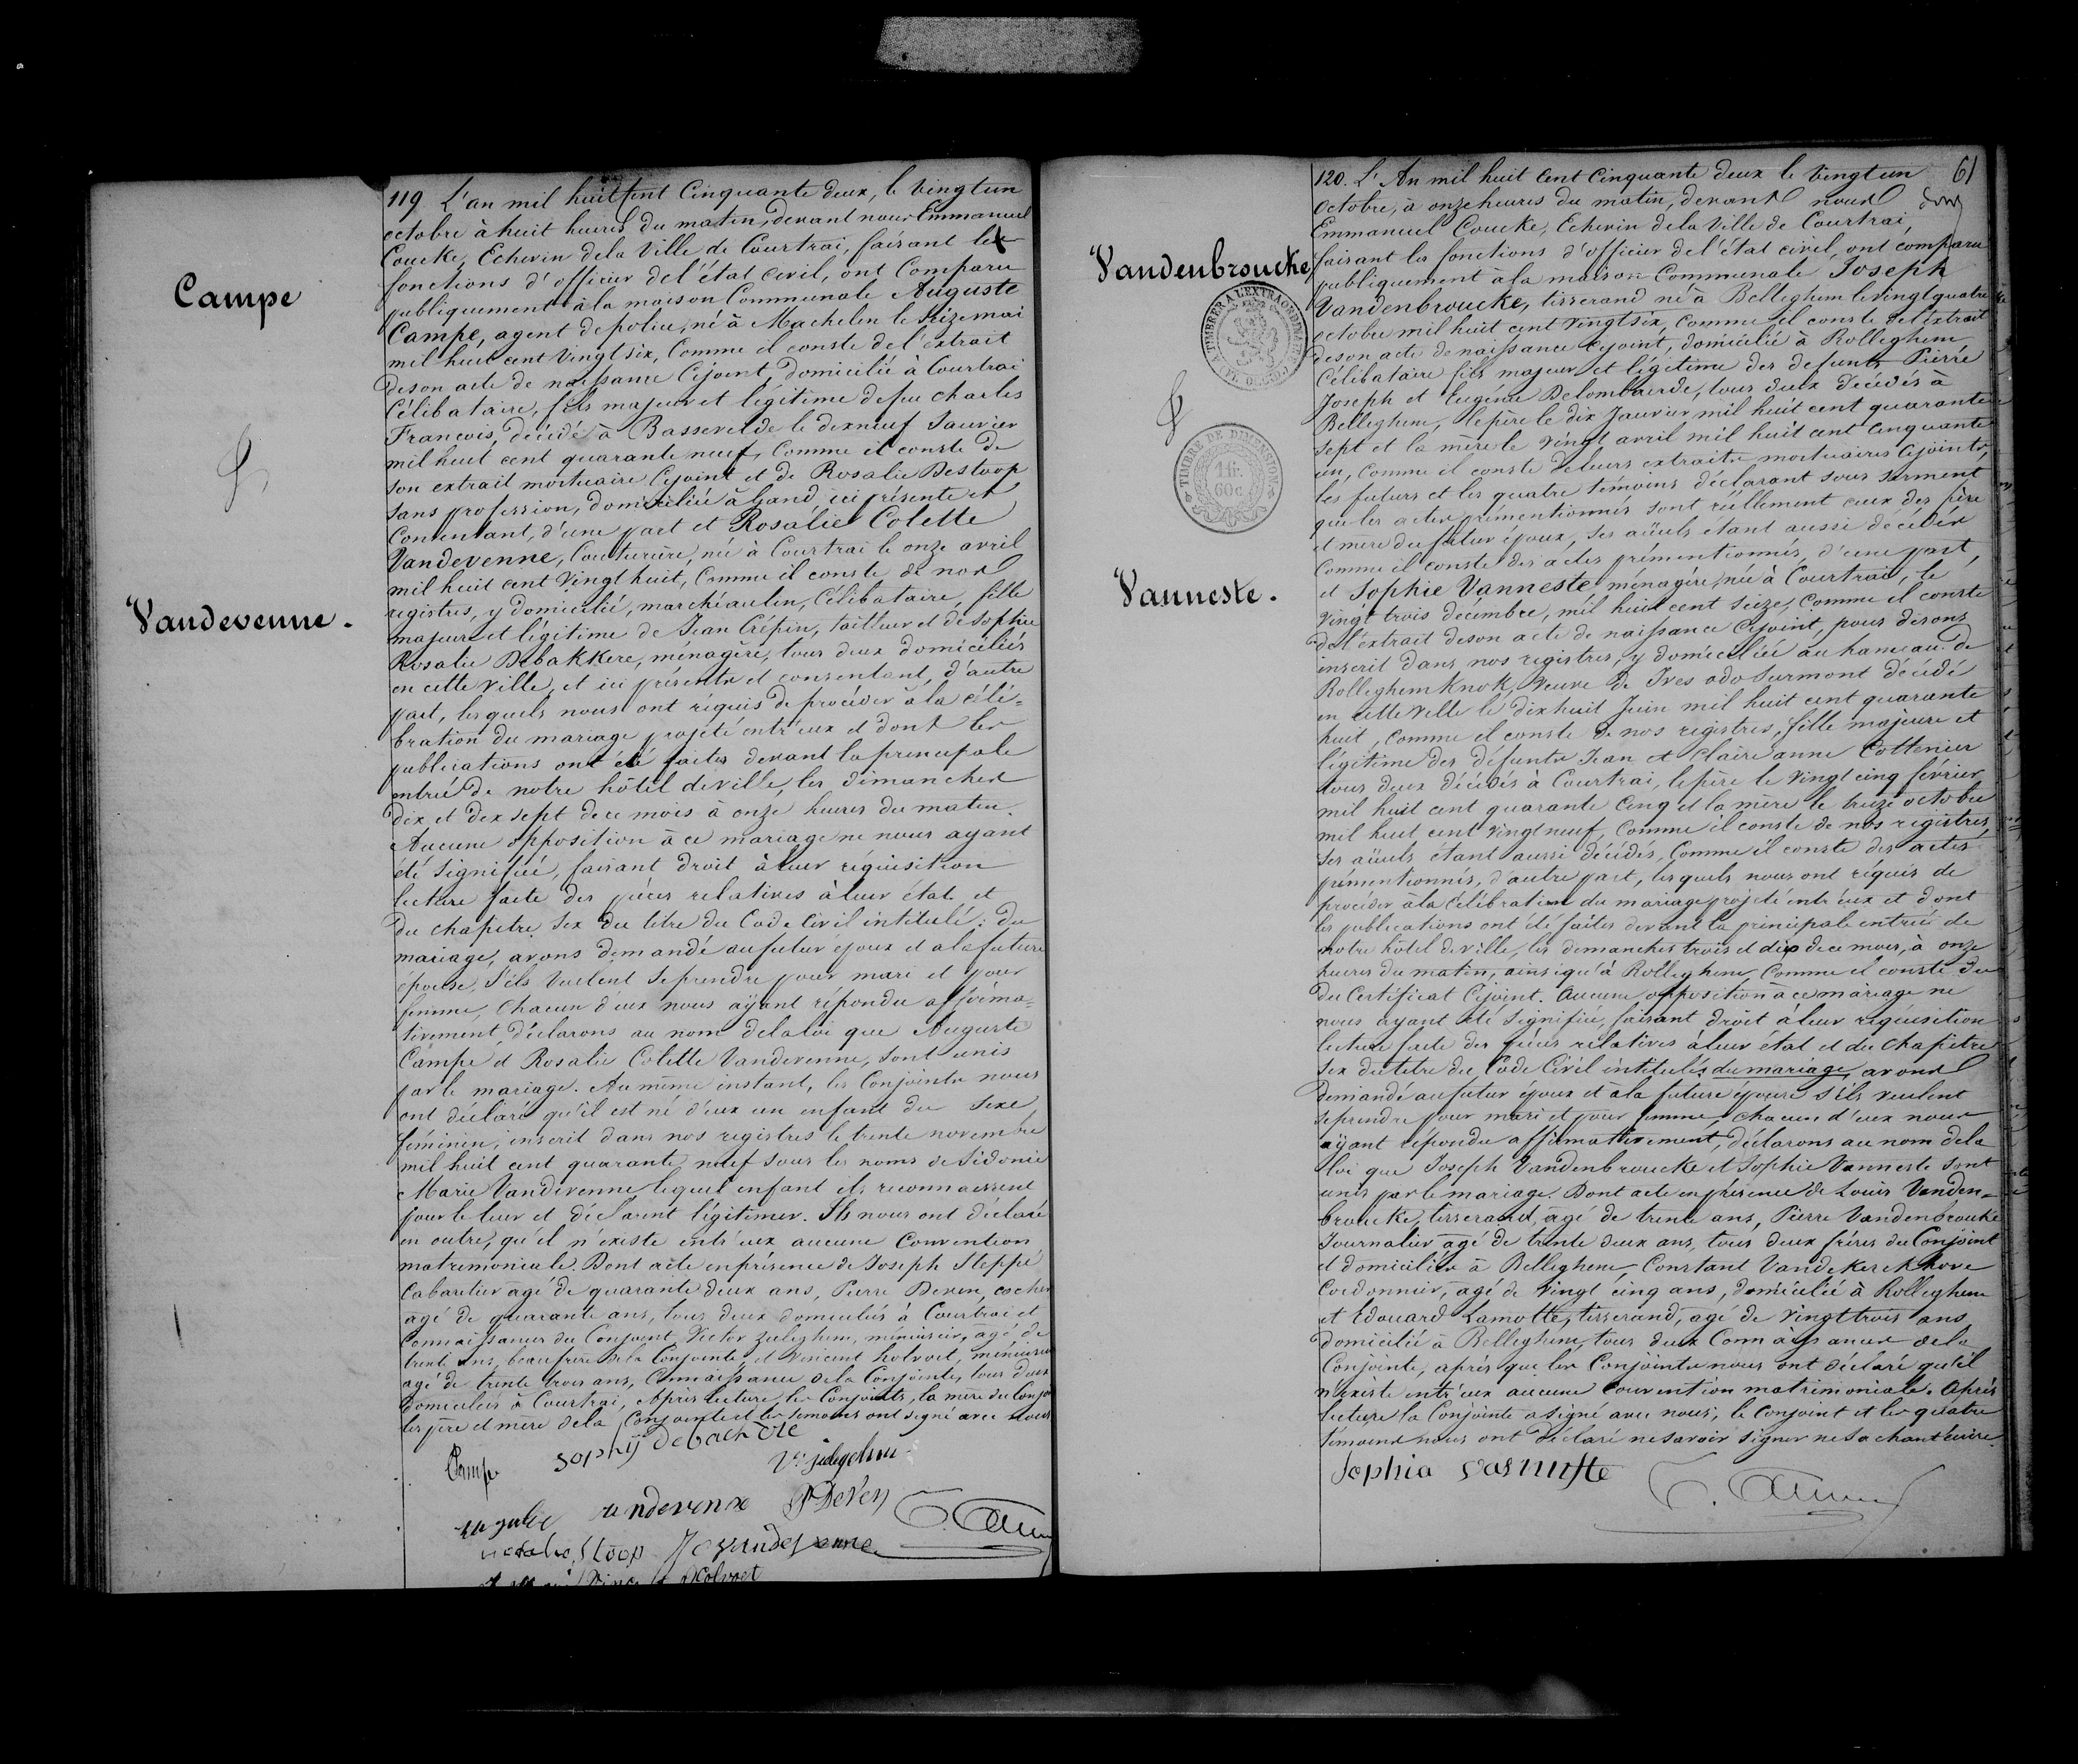 Campe
&
Vandevenne.
119 L'an mil huit cent Cinquante deux, le vingt un
octobre à huit heures du matin, devant nous Emmanuel
Coucke, Echevin de la Ville de Courtrai, faisant les
fonctions d'officier de l'état civil, ont Comparu
publiquement à la maison Communale Auguste
Campe, agent de police, né à Machelen le seize mai
mil huit cent vingt six, Comme il conste de l'extrait
de son acte de naissance Cijoint domicilié à Courtrai
Célibataire, fils majeur et légitime de feu Charles
François, décédé à Bassevelde le dixneuf Janvier
mil huit cent quarante neuf, Comme il conste de
son extrait mortuaire Cijoint et de Rosalie Destoop
sans profession, domiciliée à Gand, ici présente et
Consentant, d'une part et Rosalie Colette
Vandevenne, Couturière, née à Courtrai le onze avril
mil huit cent vingt huit, Comme il conste de nos
registres, y domiciliée, marché au lin, Célibataire, fille
majeure et légitime de Jean Crépin, tailleur et de Sophie
Rosalie Debakkere, ménagère, tous deux domiciliés
en cette ville, et ici présents et consentant, d'autre
part, lesquels nous ont réquis de procéder à la célé-
bration du mariage projeté entr'eux et dont les
publications ont été faites devant la principale
entrée de notre hôtel de ville, les dimanches
dix et dix sept de ce mois à onze heures du matin.
Aucune opposition à ce mariage ne nous ayant
été signifiée, faisant droit à leur réquisition
lecture faite des pièces relatives à leur état et
du chapitre six du titre du Code Civil intitulé: du
mariage, avons demandé au futur époux et à la future
épouse, s'ils veulent se prendre pour mari et pour
femme, chacun d'eux nous ayant répondu affirma-
tivement, déclarons au nom de la loi que Auguste
Campe et Rosalie Colette Vandevenne, sont unis
par le mariage. Au même instant, les Conjoints nous
ont déclaré qu'il est né d'eux un enfant du sexe
féminin, inscrit dans nos registres le trente novembre
mil huit cent quarante neuf sous les noms de Sidonie
Marie Vandevenne lequel enfant ils reconnaissent
pour le leur et déclarent légitimer. Ils nous ont déclaré
en outre, qu'il n'existe entr'eux aucune Convention
matrimoniale. Dont acte en présence de Joseph Steppé
Cabaretier agé de quarante deux ans, Pierre Deven, cocher
agé de quarante ans, tous deux domiciliés à Courtrai et
Connaissances du Conjoint, Victor Juleghem, menuisier, agé de
trente ans, beau frère de la Conjointe, et Vincent Holvoet, menuisier
agé de trente trois ans, Connaissance de la Conjointe, tous deux
domiciliés à Courtrai, Après lecture, les Conjoints, la mère du Conjoint
les père et mère de la Conjointe et les témoins ont signé avec nous
Campe
Vandevenne
P Deven
Stoop
Holvoet
61
Vandenbroucke
&
Vanneste.
TIMBRE DE DIMENSION
1 fr.
60 c
120. L'An mil huit Cent Cinquante deux le vingt un
Octobre, à onze heures du matin, devant nous
Emmanuel Coucke, Echevin de la Ville de Courtrai,
faisant les fonctions d'officier de l'état civil, ont comparu
publiquement à la maison Communale Joseph
Vandenbroucke, tisserand né à Belleghem le vingt quatre
octobre mil huit cent vingt six, Comme il conste de l'extrait
de son acte de naissance Cijoint, domicilié à Rolleghem
Célibataire fils majeur et légitime des défunts Pierre
Joseph et Eugénie Delombaerde, tous deux décédés à
Belleghem, le père le dix Janvier mil huit cent quarante
sept et la mère le vingt avril mil huit cent Cinquante
un, Comme il conste de leurs extraits mortuaires Cijoints,
les futurs et les quatre témoins déclarant sous serment
que les actes prémentionnés sont réellement ceux des père
et mère du futur époux, ses aïeuls étant aussi décédés
Comme il conste des actes prémentionnés, d'une part,
et Sophie Vanneste ménagère, née à Courtrai, le
vingt trois décembre, mil huit cent seize, Comme il conste
de l'extrait de son acte de naissance Cijoint, pour désons
inscrit dans nos registres, y domiciliée au hameau de
Rolleghem Knok, Veuve de Ives odo Surmont décédé
en cette ville le dix huit Juin mil huit cent quarante
huit, Comme il conste de nos registres, fille majeure et
légitime des défunts Jean et Claire anne Cottenier
tous deux décédés à Courtrai, le père le vingt cinq février
mil huit cent quarante cinq et la mère le treize octobre
mil huit cent vingt neuf, Comme il conste de nos registres
ses aïeuls étant aussi décédés, Comme il conste des actes
prémentionnés, d'autre part, lesquels nous ont réquis de
procéder à la Célébration du mariage projeté entr'eux et dont
les publications ont été faites devant la principale entrée de
notre hôtel de ville, les dimanches trois et dix de ce mois, à onze
heures du matin, ainsi qu'à Rolleghem, Comme il conste du
du Certificat Cijoint. Aucune opposition à ce mariage ne
nous ayant été signifiée, faisant droit à leur réquisition
lecture faite des pièces relatives à leur état et du chapitre
six du titre du Code Civil intitulé: du mariage, avons
demandé au futur époux et à la future épouse s'ils veulent
se prendre pour mari et pour femme, chacun d'eux nous
ayant répondu affirmativement, déclarons au nom de la
loi que Joseph Vandenbroucke et Sophie Vanneste sont
unis par le mariage. Dont acte en présence de Louis Vanden-
broucke, tisserand, agé de trente ans, Pierre Vandenbroucke
Journalier agé de trente deux ans, tous deux frères du Conjoint
et domiciliés à Belleghem, Constant Vandekerckhove
Cordonnier, agé de vingt cinq ans, domicilié à Rolleghem
et Edouard Lamotte, tisserand, agé de vingt trois ans
domicilié à Belleghem, tous deux Connaissances de la
Conjointe, après que les Conjoints nous ont déclaré qu'il
n'existe entr'eux aucune convention matrimoniale. Après
lecture la Conjointe a signé avec nous, le Conjoint et les quatre
témoins nous ont déclaré ne savoir signer ne sachant écrire.
Sophia